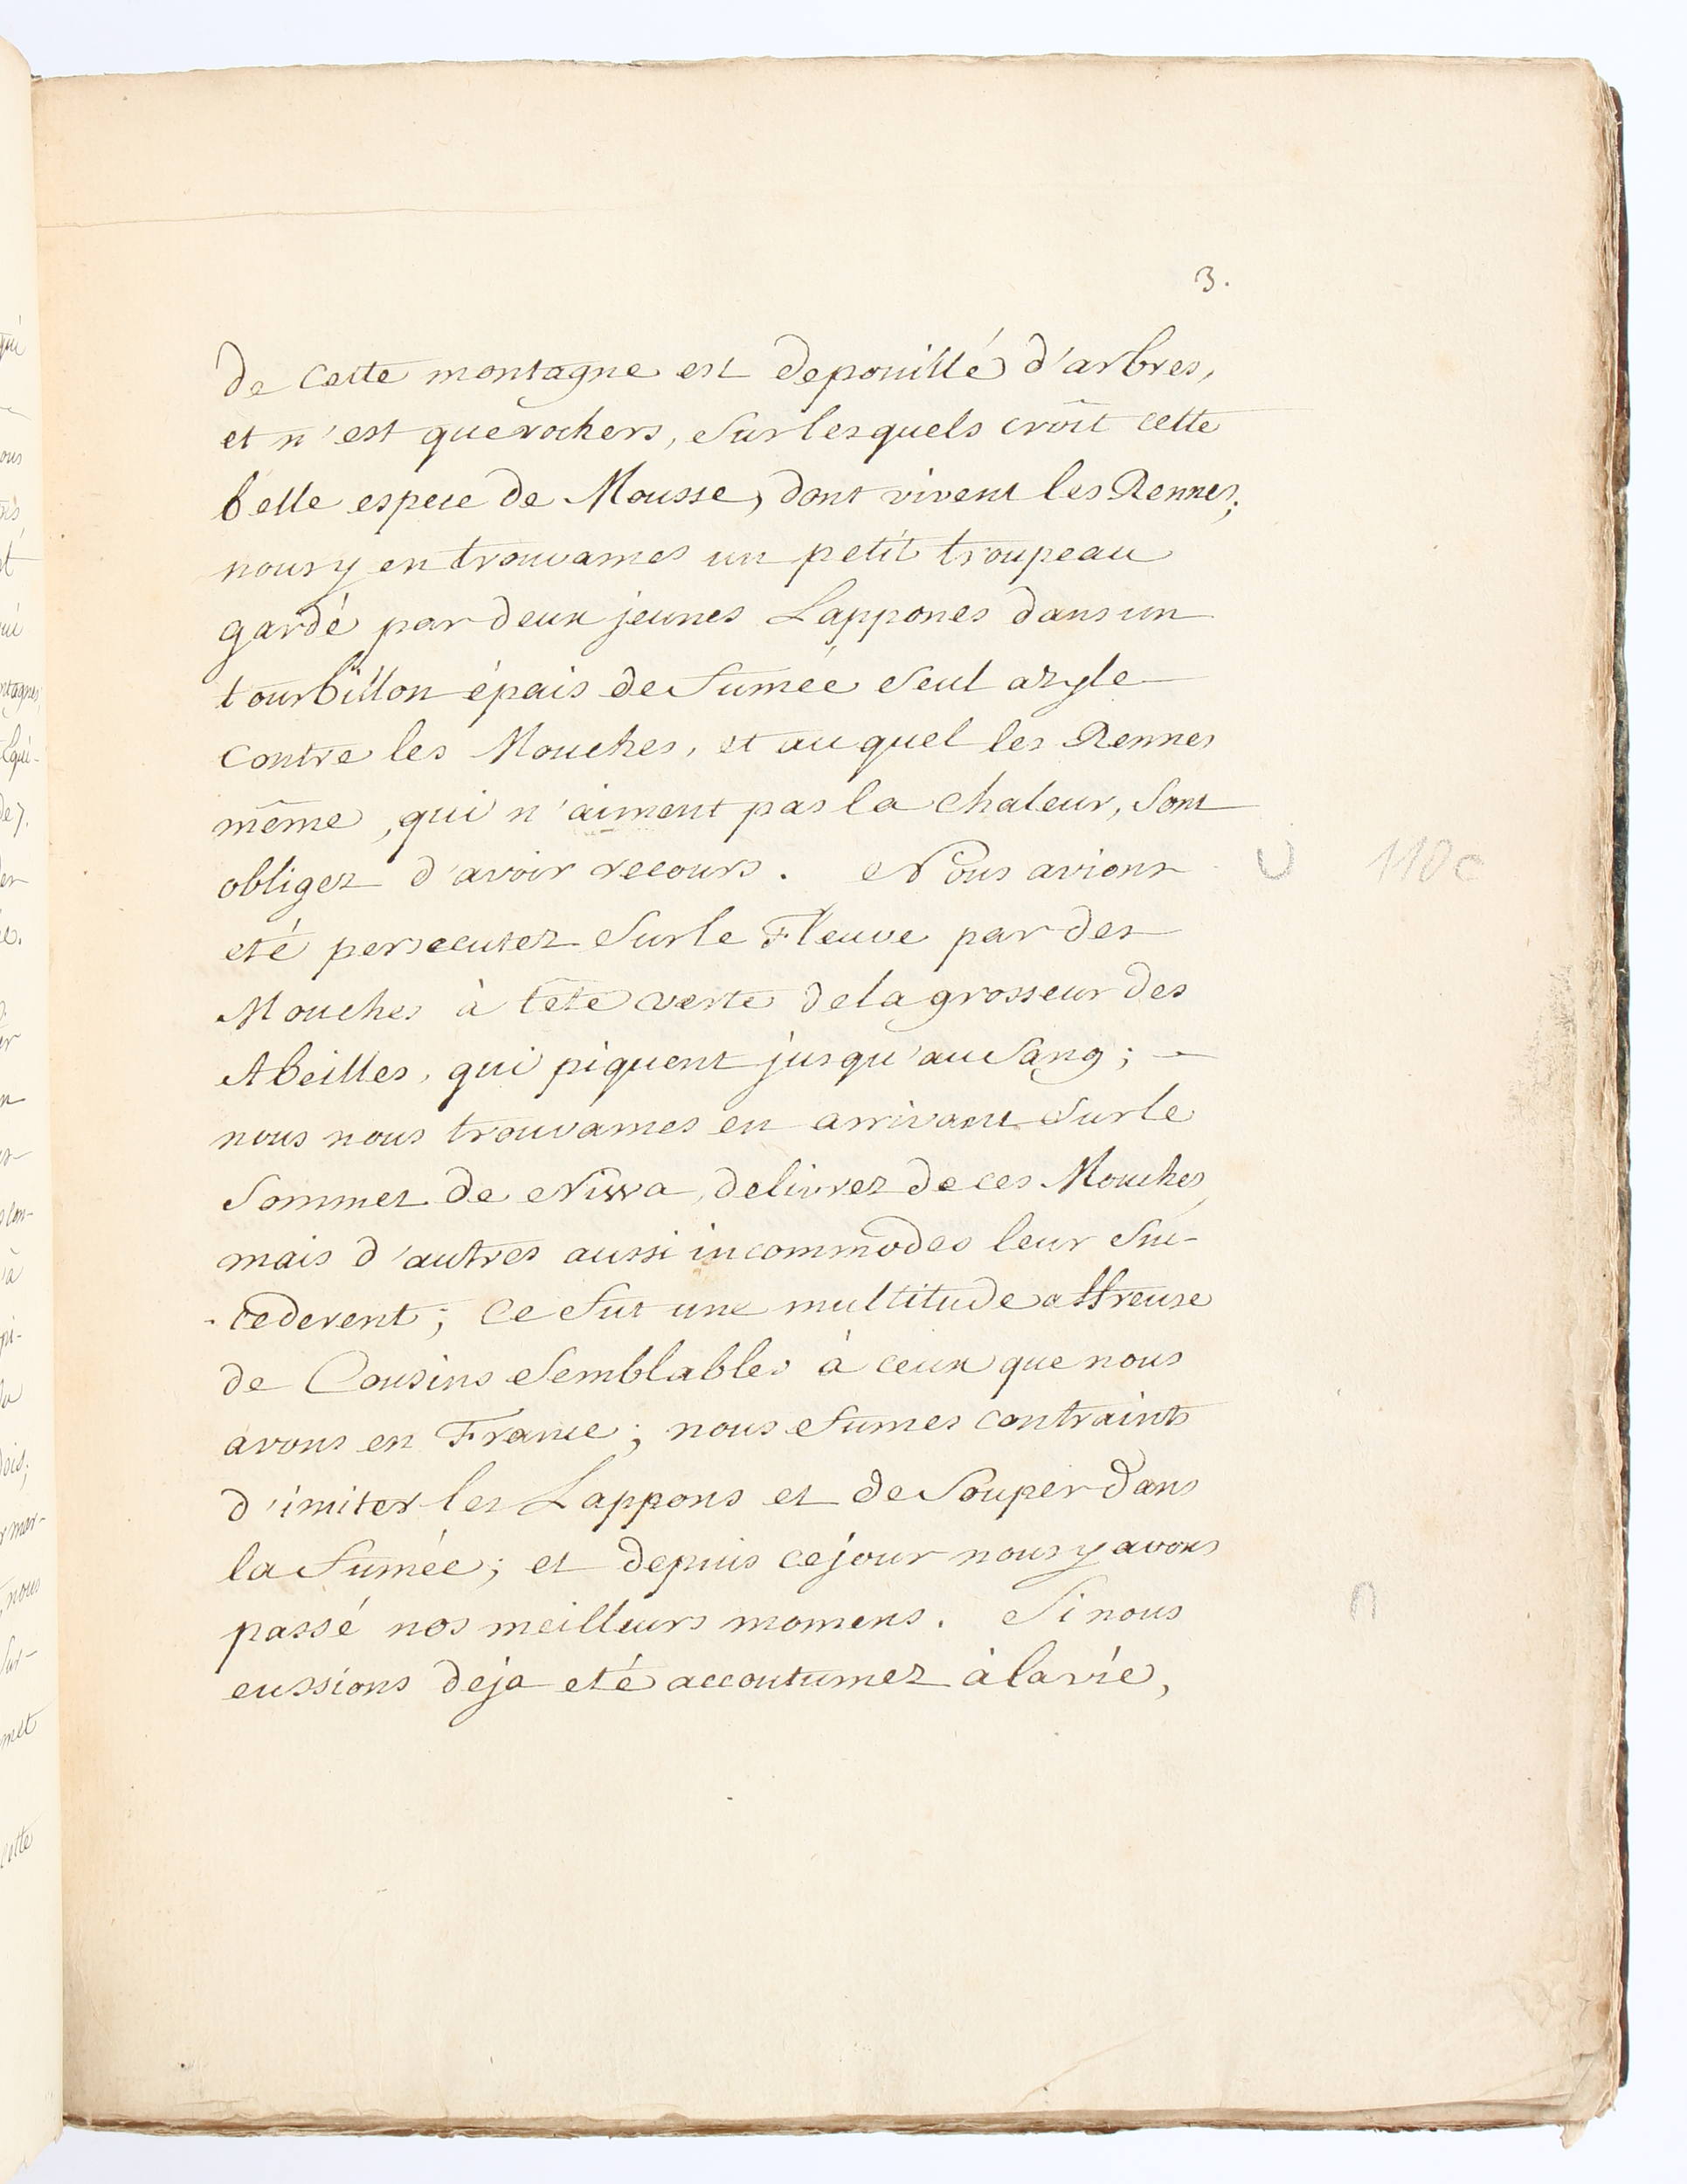 3.
de cette montagne est depouillé d'arbres,
et n'est que rochers, sur lesquels croît cette
belle espece de Mousse, dont vivent les Rennes;
nous y en trouvames un petit troupeau
gardé par deux jeunes Lappones dans un
tourbillon épais de fumée seul azyle
contre les Mouches, et auquel les Rennes
même, qui n'aiment pas la chaleur, sont
obligez d'avoir recours. Nous avions
eté persecutez sur le Fleuve par des
Mouches à tête verte de la grosseur des
Abeilles, qui piquent jusqu'au sang;
nous nous trouvames en arrivant sur le
sommet de Niwa, delivrez de ces Mouches,
mais d'autres aussi incommodes leur suc-
-cederent; ce fut une multitude affreuse
de Cousins semblables à ceux que nous
avons en France; nous fumes contraints
d'imiter les Lappons et de souper dans
la fumée; et depuis ce jour nous y avons
passé nos meilleurs momens. Si nous
eussions deja eté accoutumez à la vie,